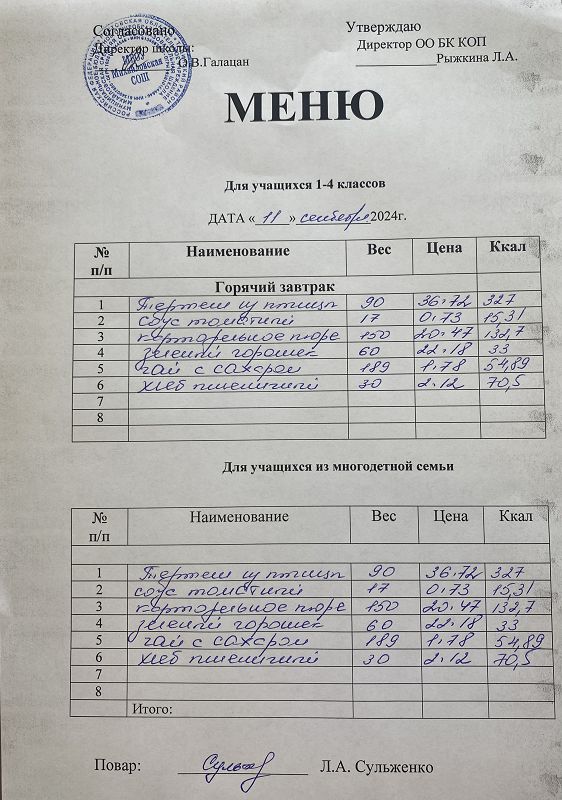 Согласовано Утверждаю
Директор школы: Директор ОО БК КОП
О.В.Галацан Рыжкина Л.А.
Михайловская
СОШ
МЕНЮ
Для учащихся 1-4 классов
ДАТА « 11 » сентября 2024г.
№ п/п Наименование Вес Цена Ккал
Горячий завтрак
1 Тефтели из птицы 90 36.72 327
2 соус томатный 17 0.73 15,31
3 картофельное пюре 150 20.47 132,7
4 зеленый горошек 60 22.18 33
5 чай с сахаром 189 1.78 54,89
6 хлеб пшеничный 30 2.12 70,5
7
8
Для учащихся из многодетной семьи
№ п/п Наименование Вес Цена Ккал
1 Тефтели из птицы 90 36.72 327
2 соус томатный 17 0.73 15,31
3 картофельное пюре 150 20.47 132,7
4 зеленый горошек 60 22.18 33
5 чай с сахаром 189 1.78 54,89
6 хлеб пшеничный 30 2.12 70,5
7
8
Итого:
Повар: Сульж Л.А. Сульженко